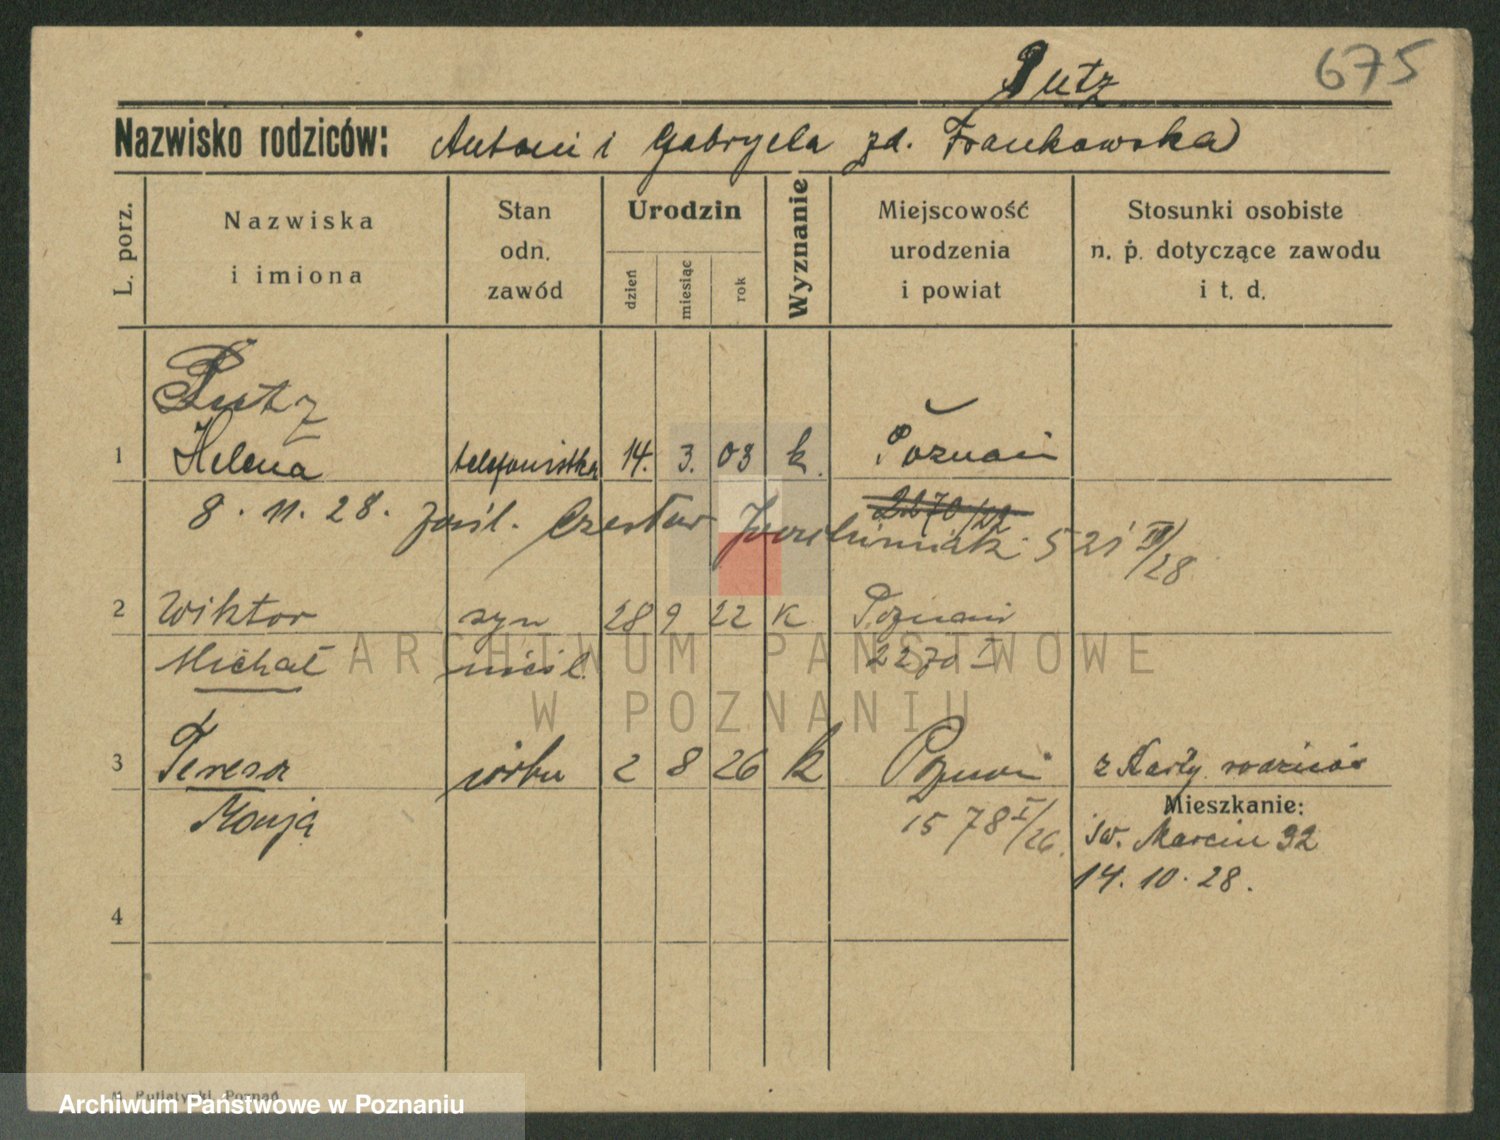 675
Putz
Nazwisko rodziców: Antoni i Gabryela zd. Frankowska
L. porz.
Nazwiska i imiona
Stan odn. zawód
Urodzin
dzień
miesiąc
rok
Wyznanie
Miejscowość urodzenia i powiat
Stosunki osobiste n. p. dotyczące zawodu i t. d.
Putz
1 Helena telefonistka 14. 3. 03 k. Poznań
2270/22
8. 11. 28. zaśl. Czesław 521 III/28
2 Wiktor syn 28 9 22 k Poznań
Michał nieśl. 2270 I
3 Teresa córka 2 8 26 k Poznań z Karty rodziców
Mieszkanie:
1578 I/26.
św. Marcin 32
14. 10. 28.
4
ARCHIWUM PAŃSTWOWE
W POZNANIU
Archiwum Państwowe w Poznaniu